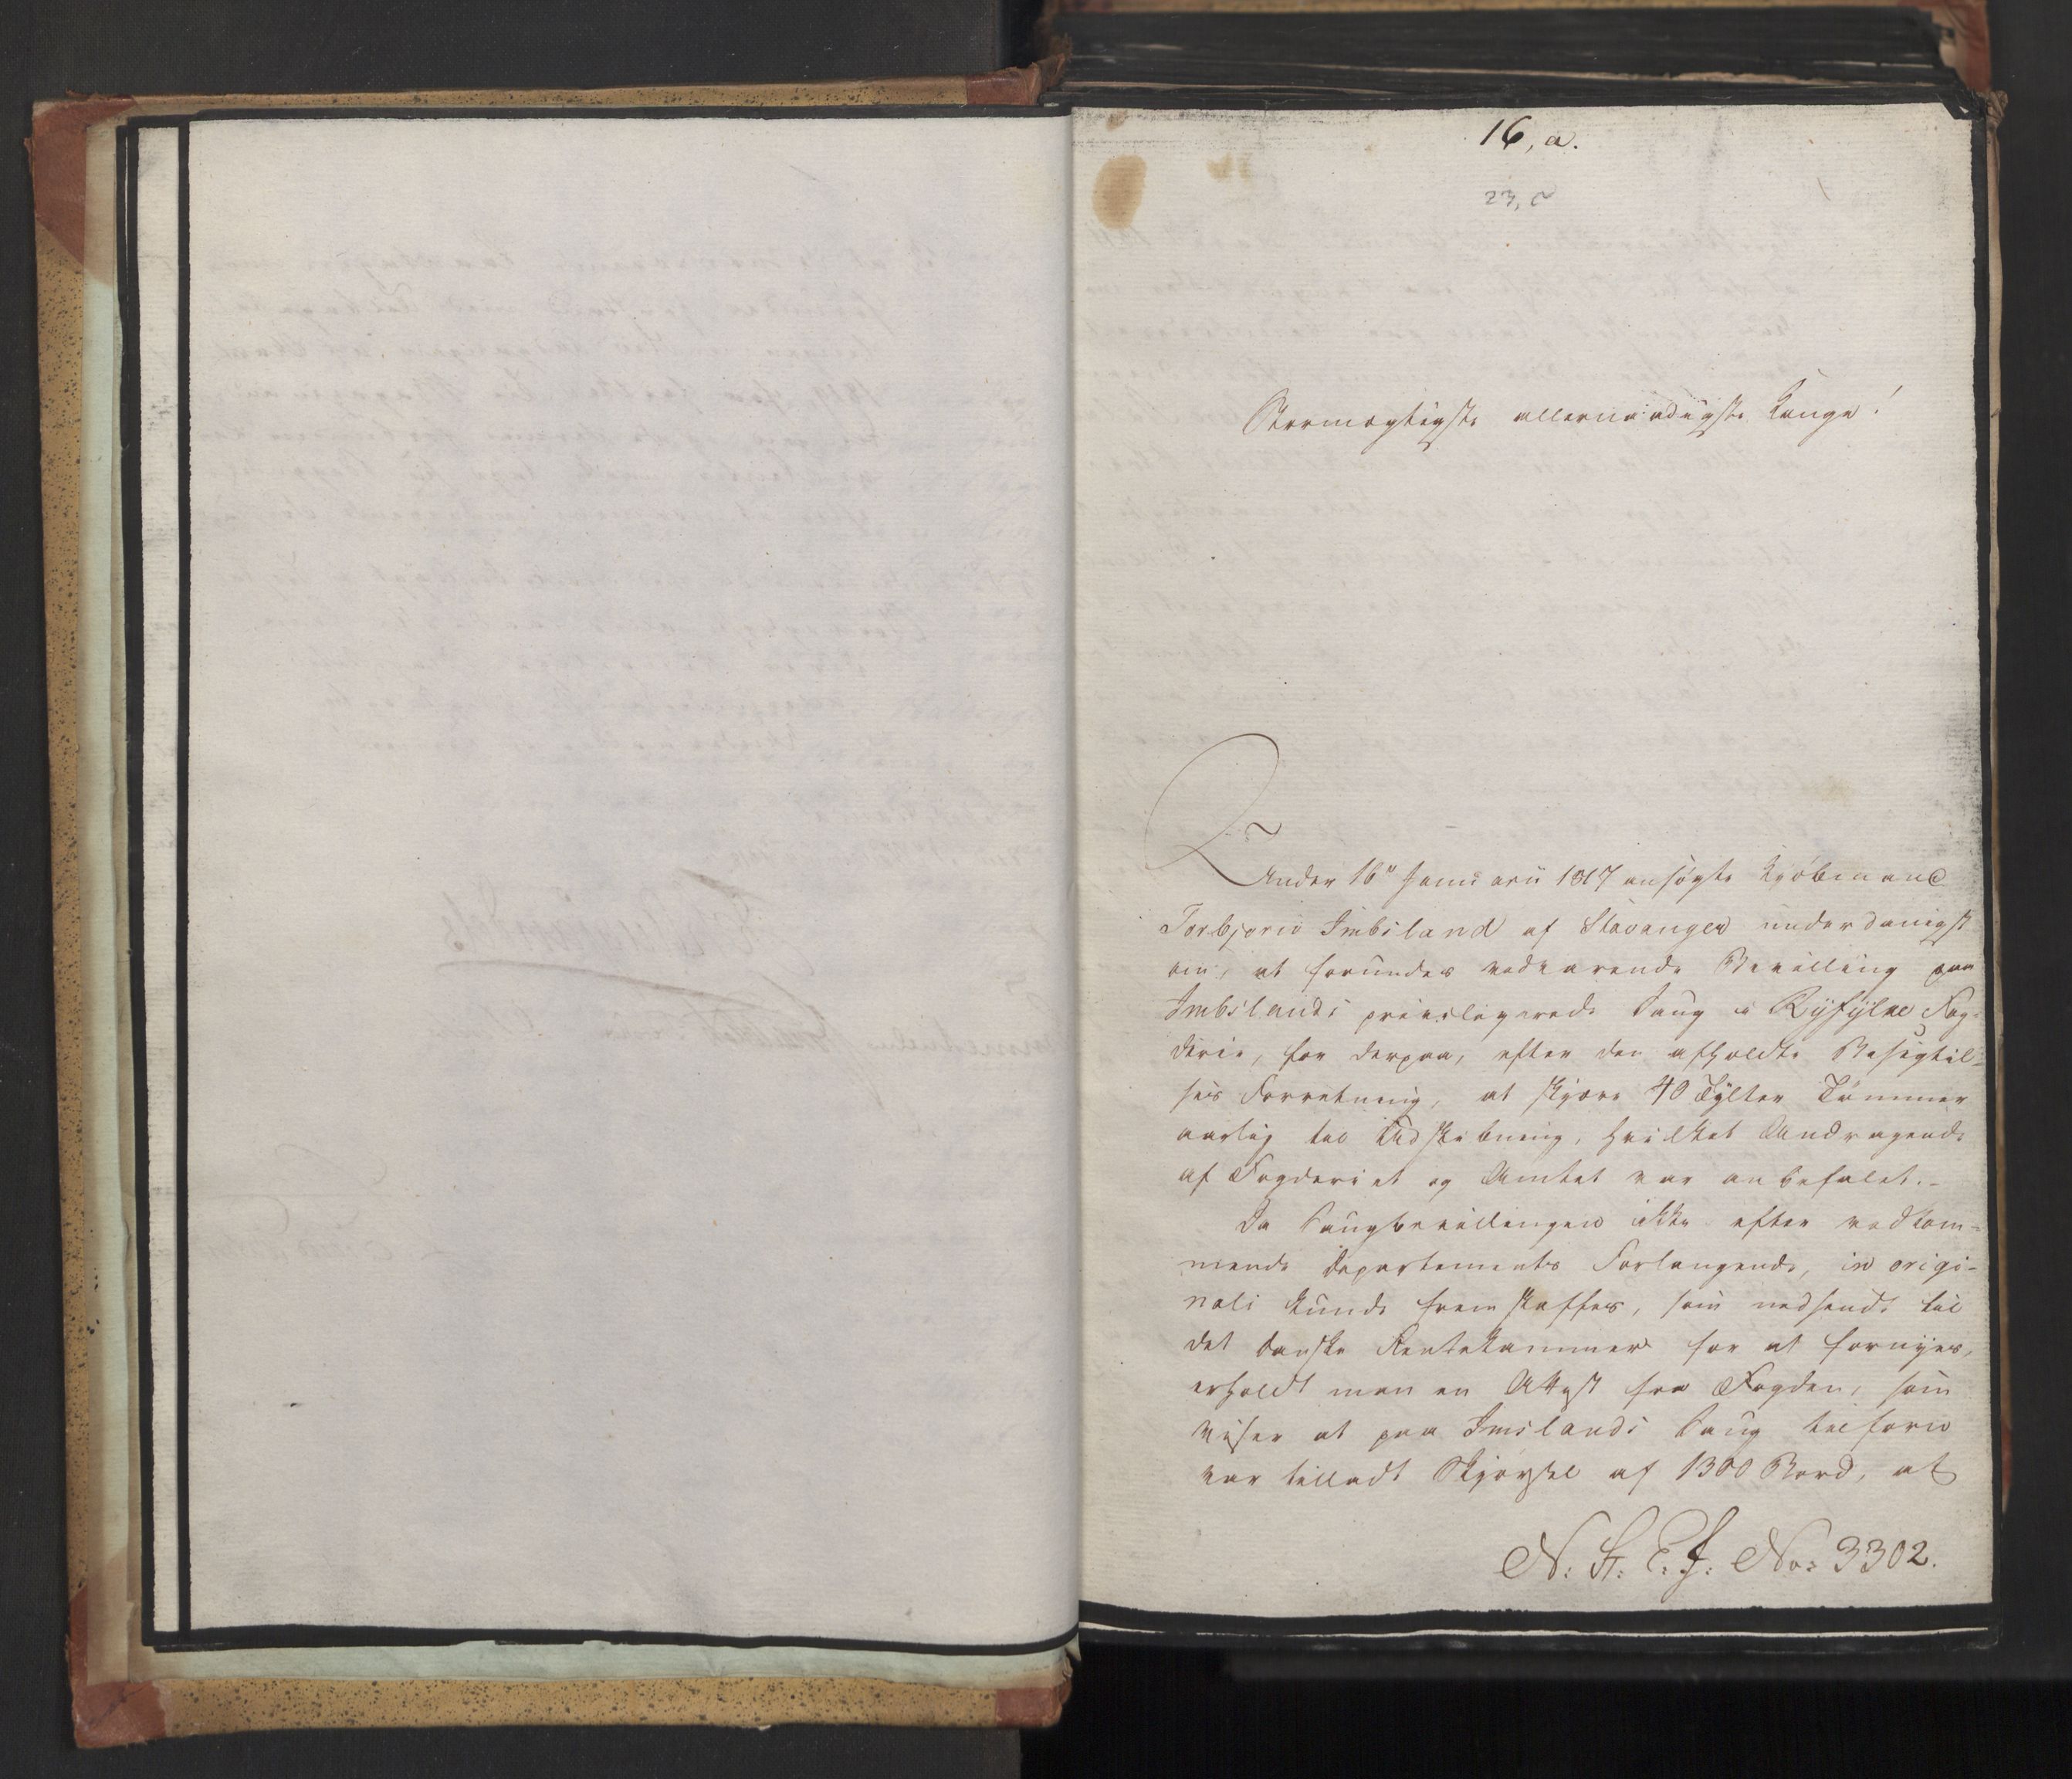 16, a.
Stormægtigste allernaadigste Konge!
Under 16de Januarii 1817 ansøgte Kjøbmand
Torbjørn Imbsland af Stavanger underdanigst
om, at forundes vedvarende Bevilling paa
Imbslands privilegerede Saug i Ryfylke Fog-
derie, for derpaa, efter den afholdte Besigtil-
ses Forretning, at skjære 40 Tylter Tømmer
aarlig til Udskibning, hvilket Andragende
af Fogderiet og Amtet var anbefalet.-
Da Saugbevillingen ikke efter vedkom-
mende Departements Forlangende, in origi-
nali kunde fremskaffes, som nedsendt til
det danske Rentekammer for at fornyes,
erholdt man en Attest fra Fogden, som
viser at paa Imslands Saug tilforn
var tilladt Skjørsel af 1300 Bord, at
N: St: E: J: No: 3302.